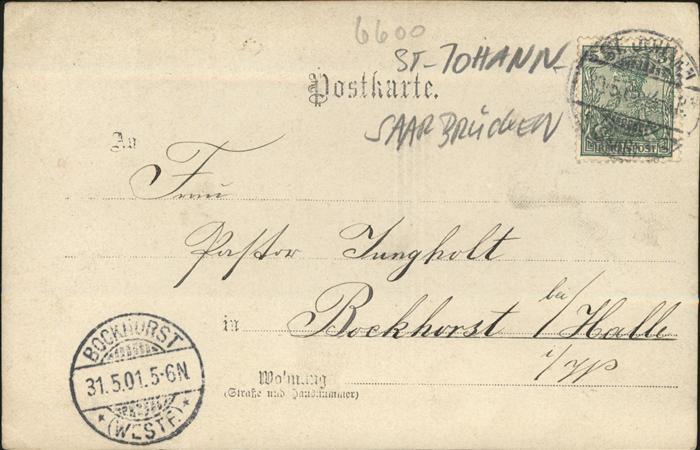 6600
ST-JOHANN-
Postkarte.
SAARBRÜCKEN
REICHSPOST
An
Frau
Pastor Jungholt
in Bockhorst bei/Halle
Wohnung
(Straße und Hausnummer)
BOCKHORST
31.5.01.5-6N
* (WESTF.) *